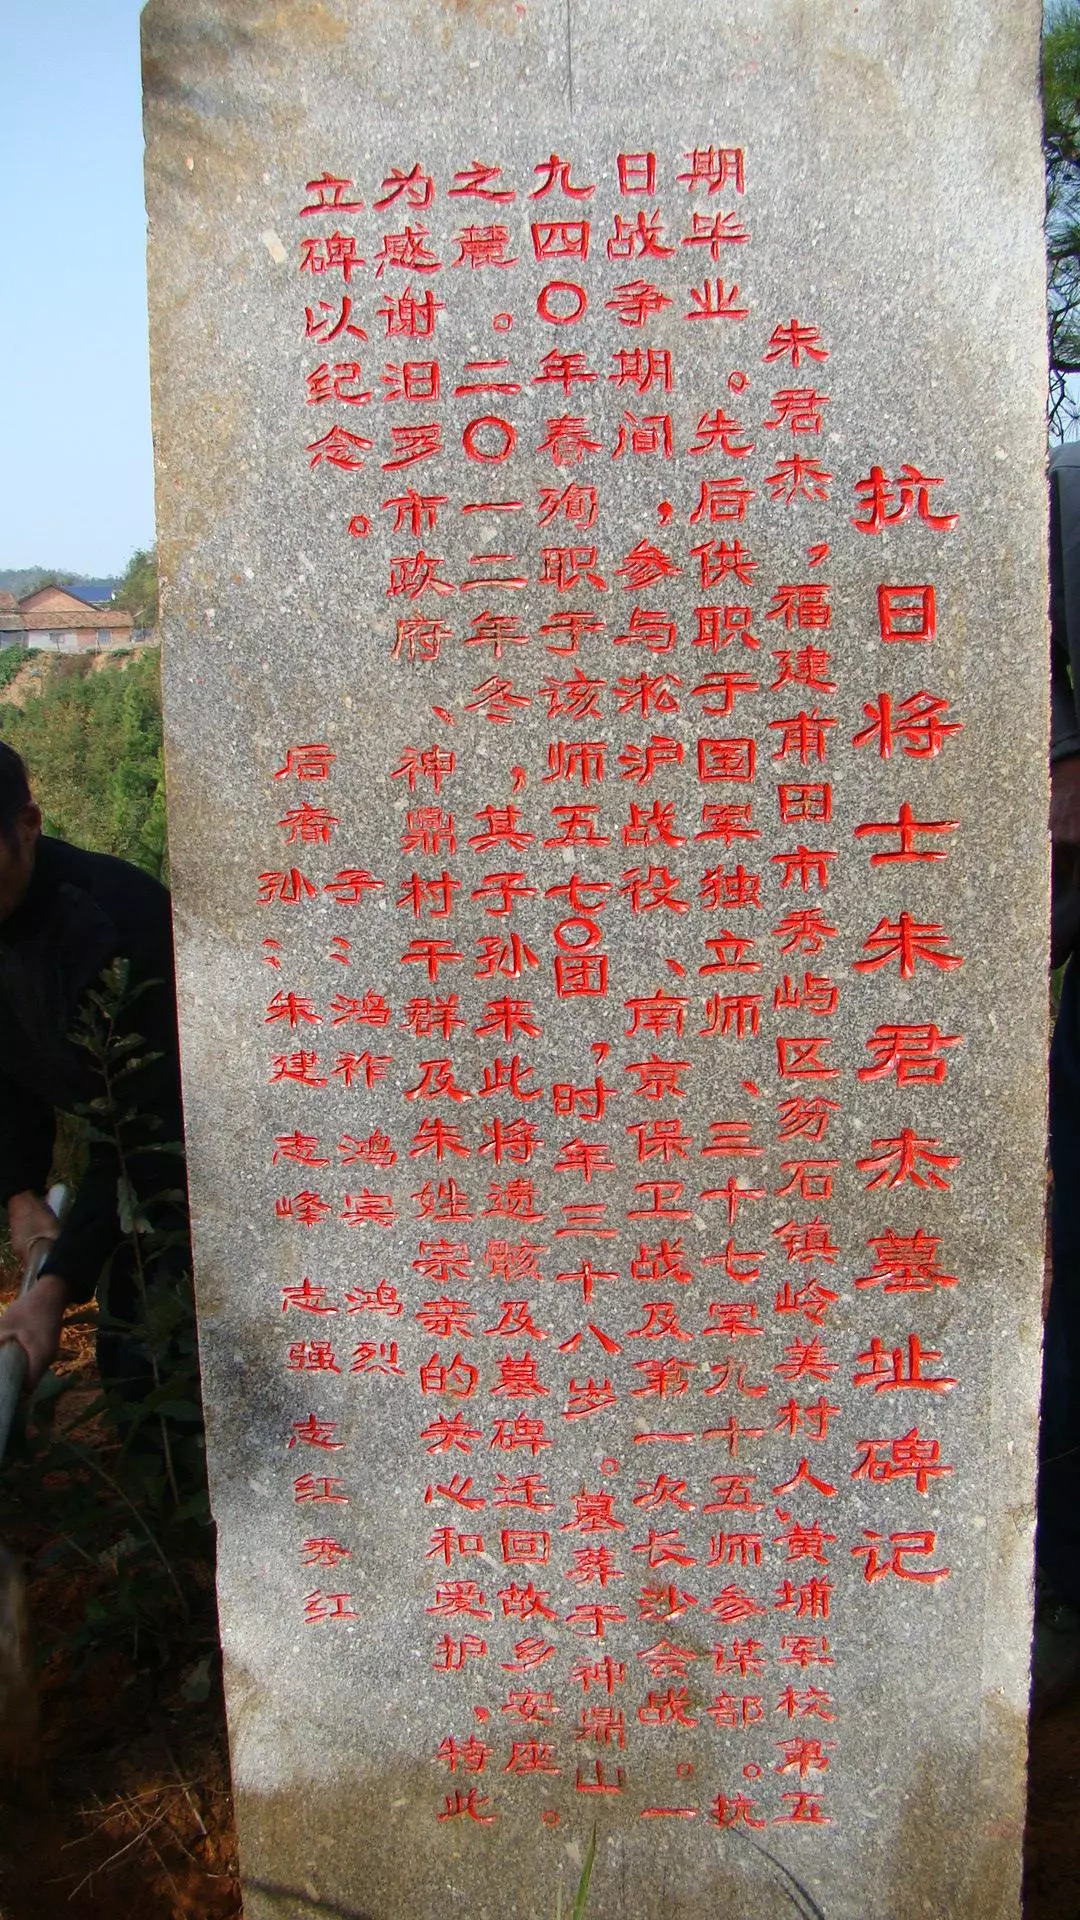 抗日将士朱君杰墓址碑记
朱君杰，福建莆田市秀屿区笏石镇岭美村人、黄埔军校第五
期毕业。先后供职于国军独立师、三十七军九十五师参谋部。抗
日战争期间，参与淞沪战役、南京保卫战及第一次长沙会战。一
九四〇年春殉职于该师五七〇团，时年三十八岁。墓葬于神鼎山
之麓。二〇一二年冬，其子孙来此将遗骸及墓碑迁回故乡安座。
为感谢汨罗市政府、神鼎村干群及朱姓宗亲的关心和爱护，特此
立碑以纪念。
子：鸿祚 鸿宾 鸿烈
后裔
孙：朱建 志峰 志强 志红 秀红